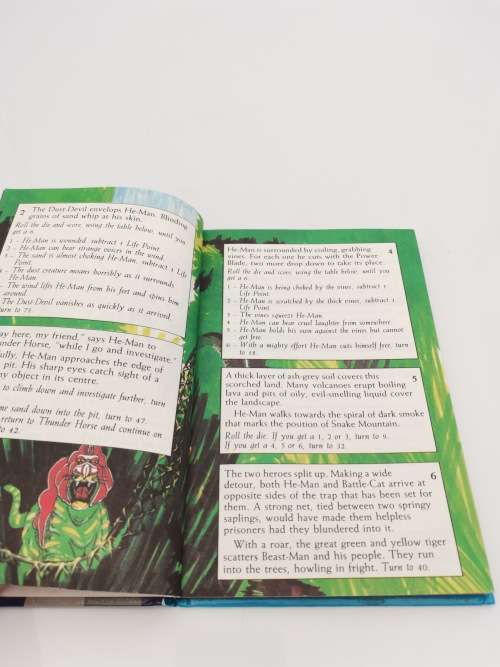 2 The Dust-Devil envelops He-Man. Blinding
grains of sand whip at his skin.
Roll the die and score, using the table below, until you
get a 6.
1 – He-Man is wounded, subtract 1 Life Point.
2 – He-Man can hear strange voices in the wind.
3 – The sand is almost choking He-Man, subtract 1 Life
Point.
– The dust creature moans horribly as it surrounds
He-Man.
– The wind lifts He-Man from his feet and spins him
around.
The Dust-Devil vanishes as quickly as it arrived,
turn to 71.
ay here, my friend," says He-Man to
under Horse, "while I go and investigate."
fully, He-Man approaches the edge of
pit. His sharp eyes catch sight of a
ny object in its centre.
to climb down and investigate further, turn
me sand down into the pit, turn to 47.
return to Thunder Horse and continue on
to 42.
4
He-Man is surrounded by coiling, grabbing
vines. For each one he cuts with the Power
Blade, two more drop down to take its place.
Roll the die and score, using the table below, until you
get a 6.
1 – He-Man is being choked by the vines, subtract 1
Life Point.
2 – He-Man is scratched by the thick vines, subtract 1
Life Point.
3 – The vines squeeze He-Man.
4 – He-Man can hear cruel laughter from somewhere.
5 – He-Man holds his own against the vines but cannot
get free.
6 – With a mighty effort He-Man cuts himself free, turn
to 18.
5
A thick layer of ash-grey soil covers this
scorched land. Many volcanoes erupt boiling
lava and pits of oily, evil-smelling liquid cover
the landscape.
He-Man walks towards the spiral of dark smoke
that marks the position of Snake Mountain.
Roll the die. If you get a 1, 2 or 3, turn to 9.
If you get a 4, 5 or 6, turn to 32.
6
The two heroes split up. Making a wide
detour, both He-Man and Battle-Cat arrive at
opposite sides of the trap that has been set for
them. A strong net, tied between two springy
saplings, would have made them helpless
prisoners had they blundered into it.
With a roar, the great green and yellow tiger
scatters Beast-Man and his people. They run
into the trees, howling in fright. Turn to 40.